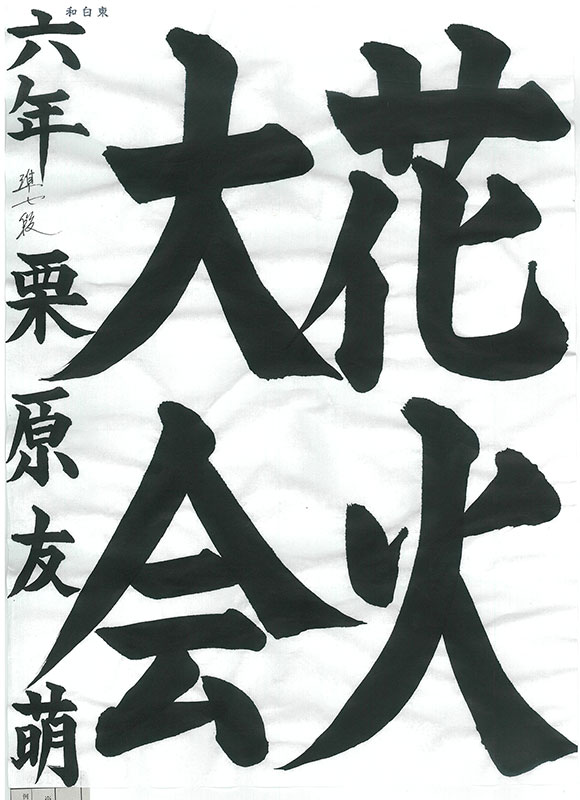 東白和
花火
大会
六年 準七段 栗原友萌